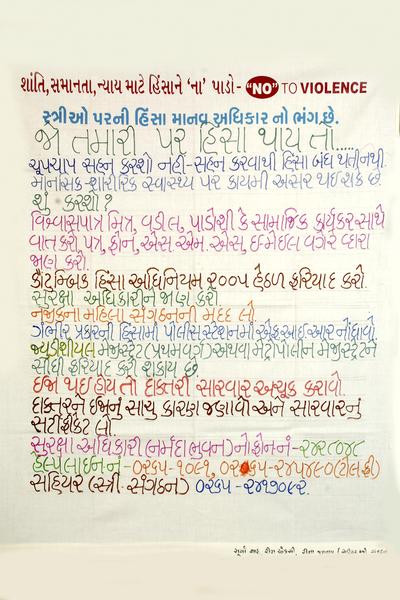 શાંતિ,સમાનતા,ન્યાય માટે હિંસાને 'ના' પાડો - "NO" TO VIOLENCE
સ્ત્રીઓ પરની હિંસા માનવ અધિકાર નો ભંગ છે.
જો તમારી પર હિંસા થાય તો.....
ચૂપચાપ સહન કરશો નહીં - સહન કરવાથી હિંસા બંધ થતી નથી.
માનસિક-શારીરિક સ્વાસ્થ્ય પર કાયમી અસર થઈ શકે છે.
શું કરશો?
વિશ્વાસપાત્ર મિત્ર, વડીલ, પાડોશી કે સામાજિક કાર્યકર સાથે
વાત કરો, પત્ર, ફોન, એસ. એમ. એસ, ઈ-મેઈલ વગેરે દ્વારા
જાણ કરો.
કૌટુમ્બિક હિંસા અધિનિયમ ૨૦૦૫ હેઠળ ફરિયાદ કરો.
સુરક્ષા અધિકારીને જાણ કરો.
નજીકના મહિલા સંગઠનની મદદ લો.
ગંભીર પ્રકારની હિંસામાં પોલીસ સ્ટેશનમાં એફ.આઈ.આર નોંધાવો
જ્યુડીશીયલ મેજીસ્ટ્રેટ (પ્રથમવર્ગ) અથવા મેટ્રોપોલીટન મેજીસ્ટ્રેટને
સીધી ફરિયાદ કરી શકાય છે.
ઈજા થઈ હોય તો દાક્તરી સારવાર અચૂક કરાવો.
દાક્તરને ઈજાનું સાચુ કારણ જણાવી અને સારવારનું
સર્ટીફીકેટ લો.
સુરક્ષા અધિકારી (નર્મદા ભુવન) નો ફોન નં - ૨૪૨૮૦૪૮
હેલ્પલાઈન નં - ૦૨૬૫-૧૦૯૧, ૦૨૬૫ - ૨૪૫૪૯૦ (ટોલ ફ્રી)
સહિયર (સ્ત્રી સંગઠન) ૦૨૬૫ - ૨૪૧૩૦૯૨.